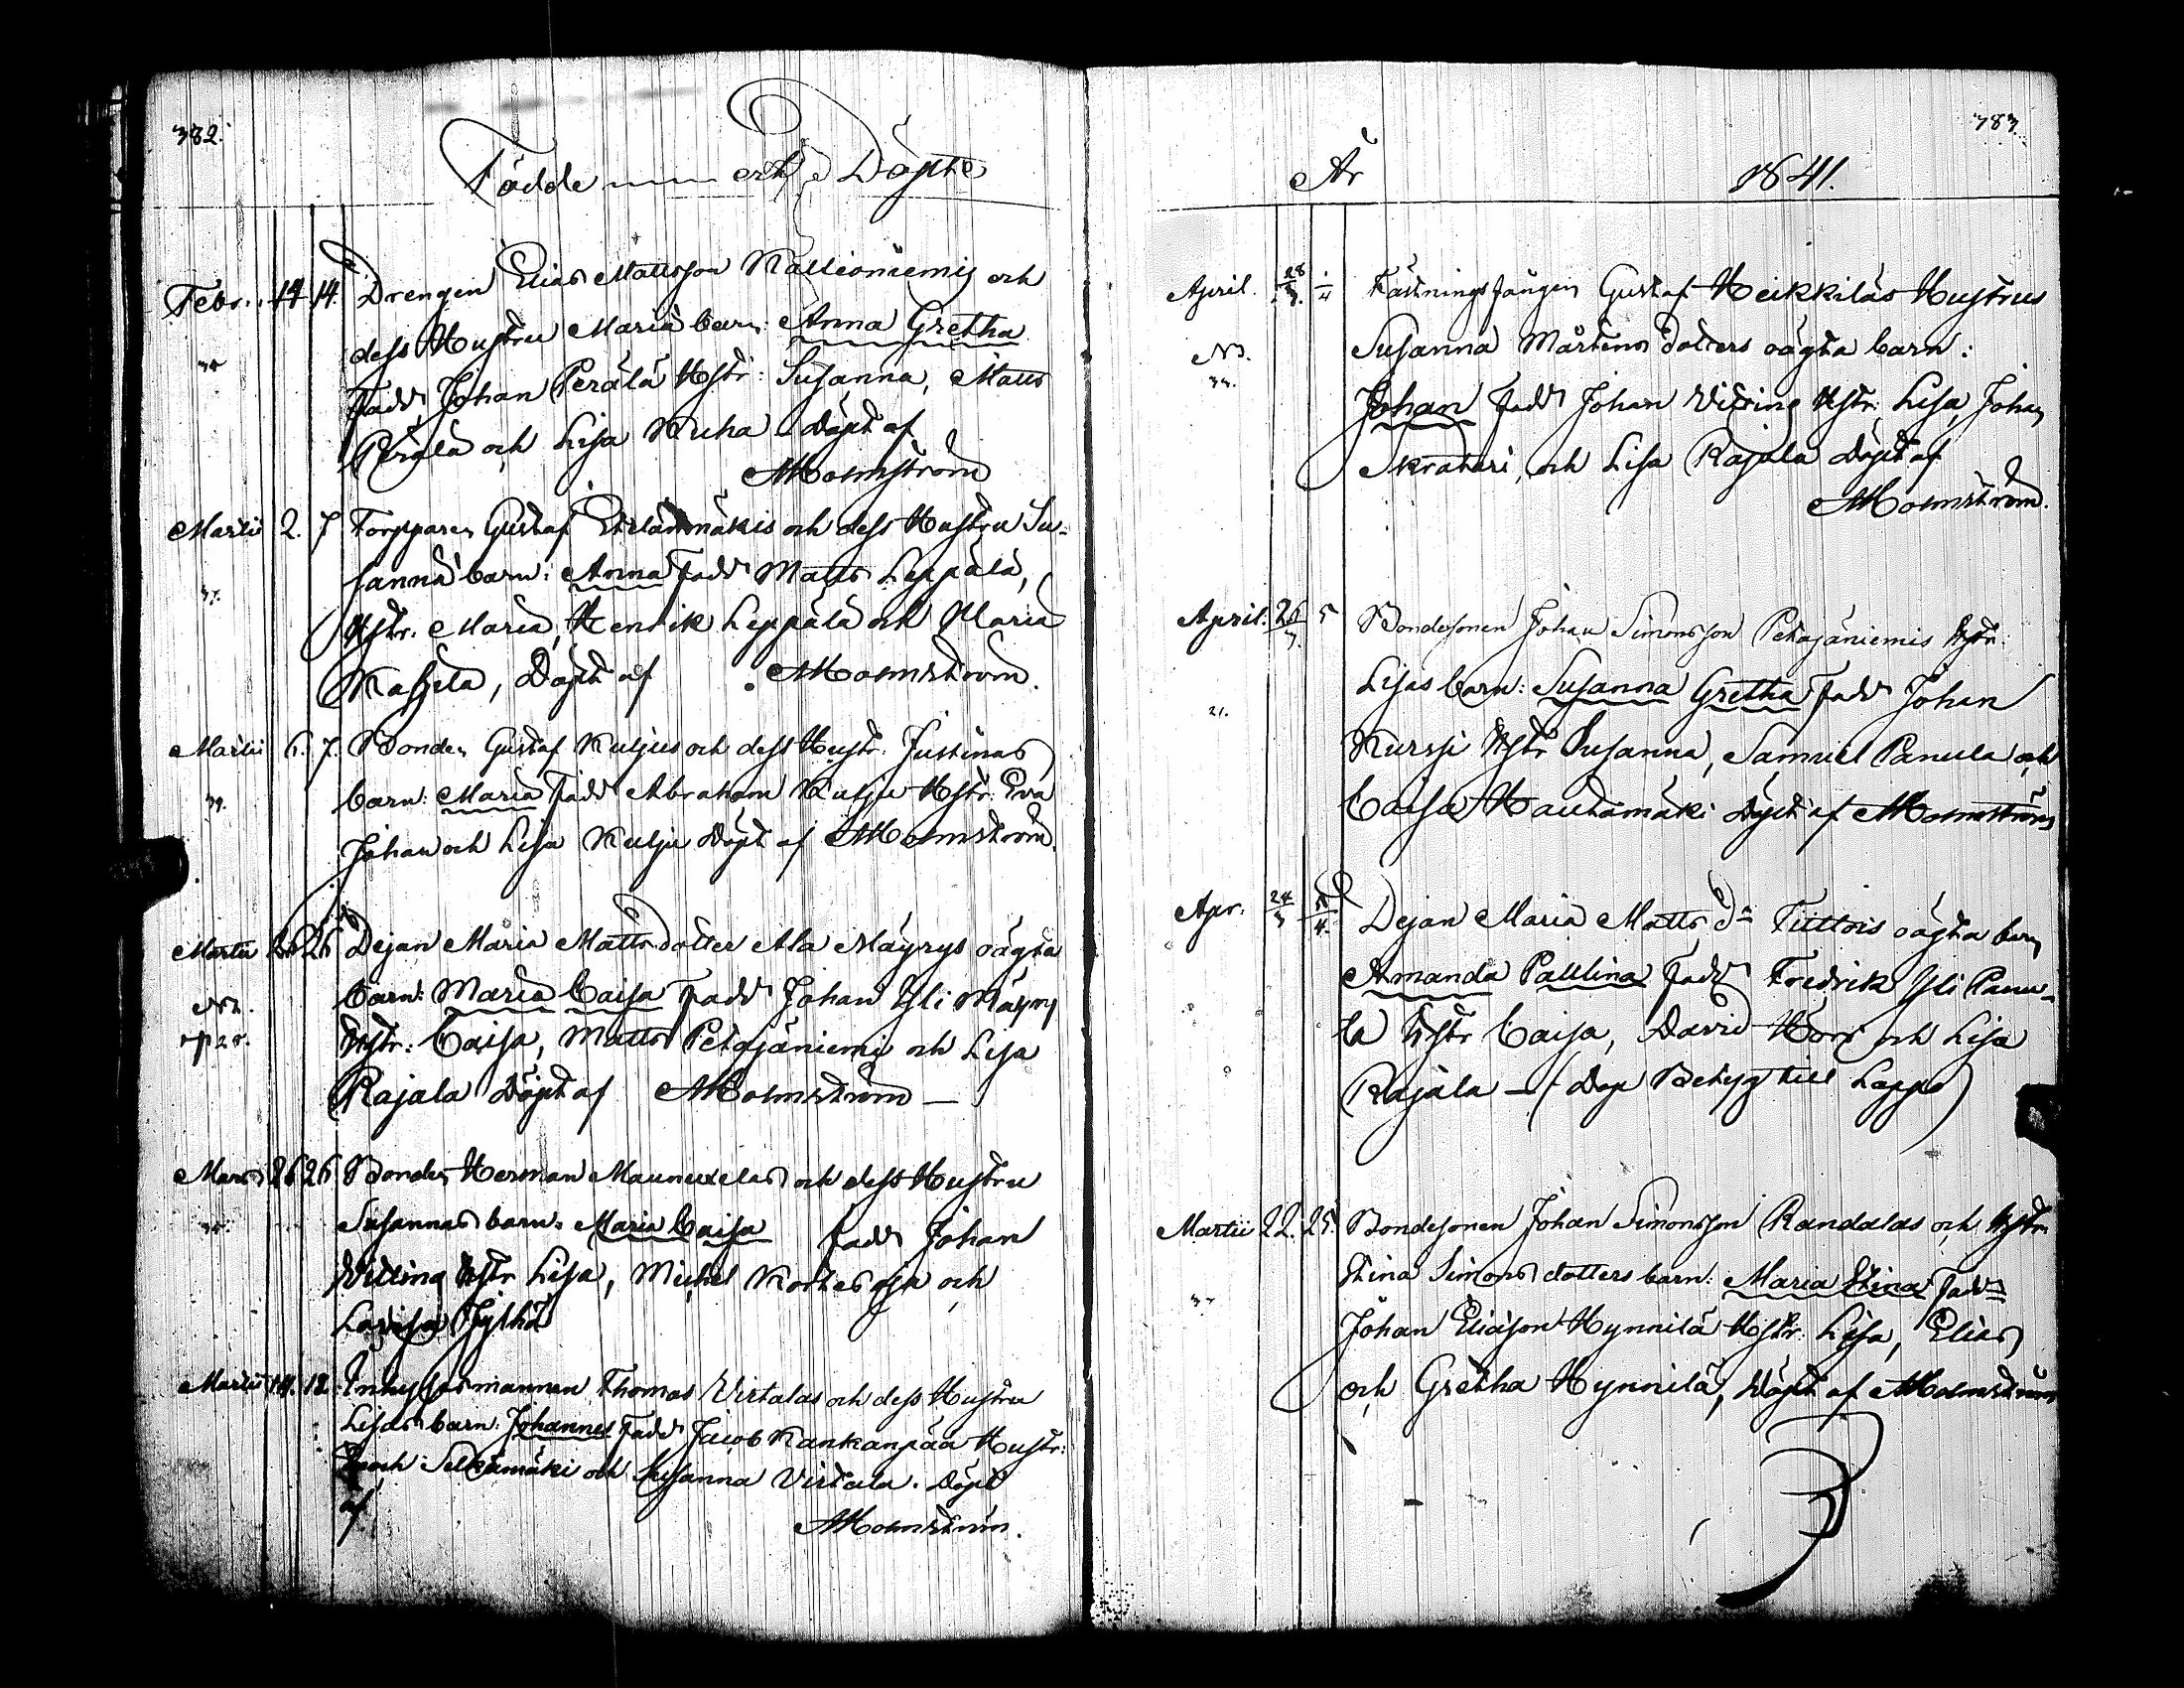 382.
Födde och Döpte
Febr. 14 14. Drengen Elias Mattsson Kallioniemis och
dess Hustru Maria barn: Anna Gretha
Fadd. Johan Perälä Hstr: Susanna, Matts
Perälä och Lisa Kuha Döpt af
Holmström
Martii 2. 7 Torpparen Gustaf Etelämäkis och dess Hustru Su-
sanna barn: Anna Fadd Matts Leppälä,
Hstr. Maria, Henrik Leppälä och Maria
Döpt af Holmström.
Martii 6. 7. Bonden Gustaf Kuljus och dess Hustr. Justinas
39.
barn: Maria Fadd Abraham Kulju Hstr: Eva
Johan och Lisa Kulju Döpt af Holmström.
Martii 26 Dejan Maria Matts dotter Ala Mäyrys oägta
barn: Maria Caisa Fadd Johan Yli Mäyry
Hstr: Caisa, Matts Petäjäniemi och Lisa
Rajala Döpt af Holmström —
26 26 Bonden Herman Maunuxelas och dess Hustru
Susannas barn: Maria Caisa Fadd Johan
Witting Hstr Lisa, Michel Kortesoja och
Lovisa Jylhä
Martii 12. Inhysesmannen Thomas Virtalas och dess Hustru
Lisas barn: Johannes Fadd Jacob Kankanpää Hustr:
och Selkämäki och Susanna Virtala. Döpt
af
Holmström.
383.
År 1841.
April. 28/3. 1/4 Fästningsfången Gustaf Heikkiläs Hustrus
Susanna Mårtens dotters oägta barn:
Johan Fadd Johan Hstr: Lisa, Johan
Skratari, och Lisa Rajala Döpt af
Holmström.
April. 26/3. 5 Bondesonen Johan Simonsson Petäjäniemis Hstr:
21.
Lisas barn: Susanna Gretha Fadd Johan
Kurssi Hstr Susanna, Samuel Panula och
Caisa Hautamäki Döpt af Holmström
Apr: 24/3 Dejan Maria Matts dr oägta barn
Amanda Paulina Fadd Fredrik Yli Panu-
la Hstr Caisa, David och Lisa
Rajala — (Dop Betyg till Lappo)
Martii 22. 25. Bondesonen Johan Simonsson Randalas och Hstr
Stina Simons dotters barn: Maria Stina Fadd
Johan Eliasson Hynnilä Hstr: Lisa, Elias
och Gretha Hynnilä, Döpt af Holmström